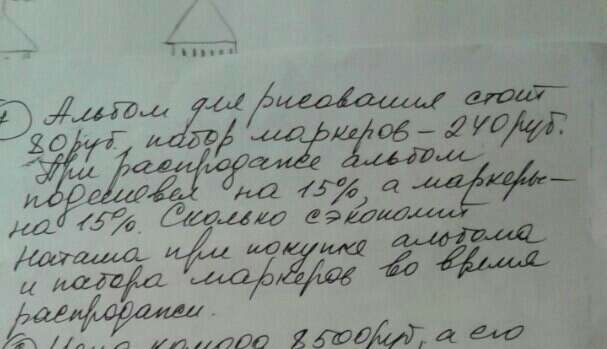 1 Альбом для рисования стоит
80 руб., набор маркеров – 240 руб.
При распродаже альбом
подешевел на 15%, а маркеры –
на 15%. Сколько сэкономит
Наташа при покупке альбома
и набора маркеров во время
распродажи.
2 Цена комода 8500 руб, а его